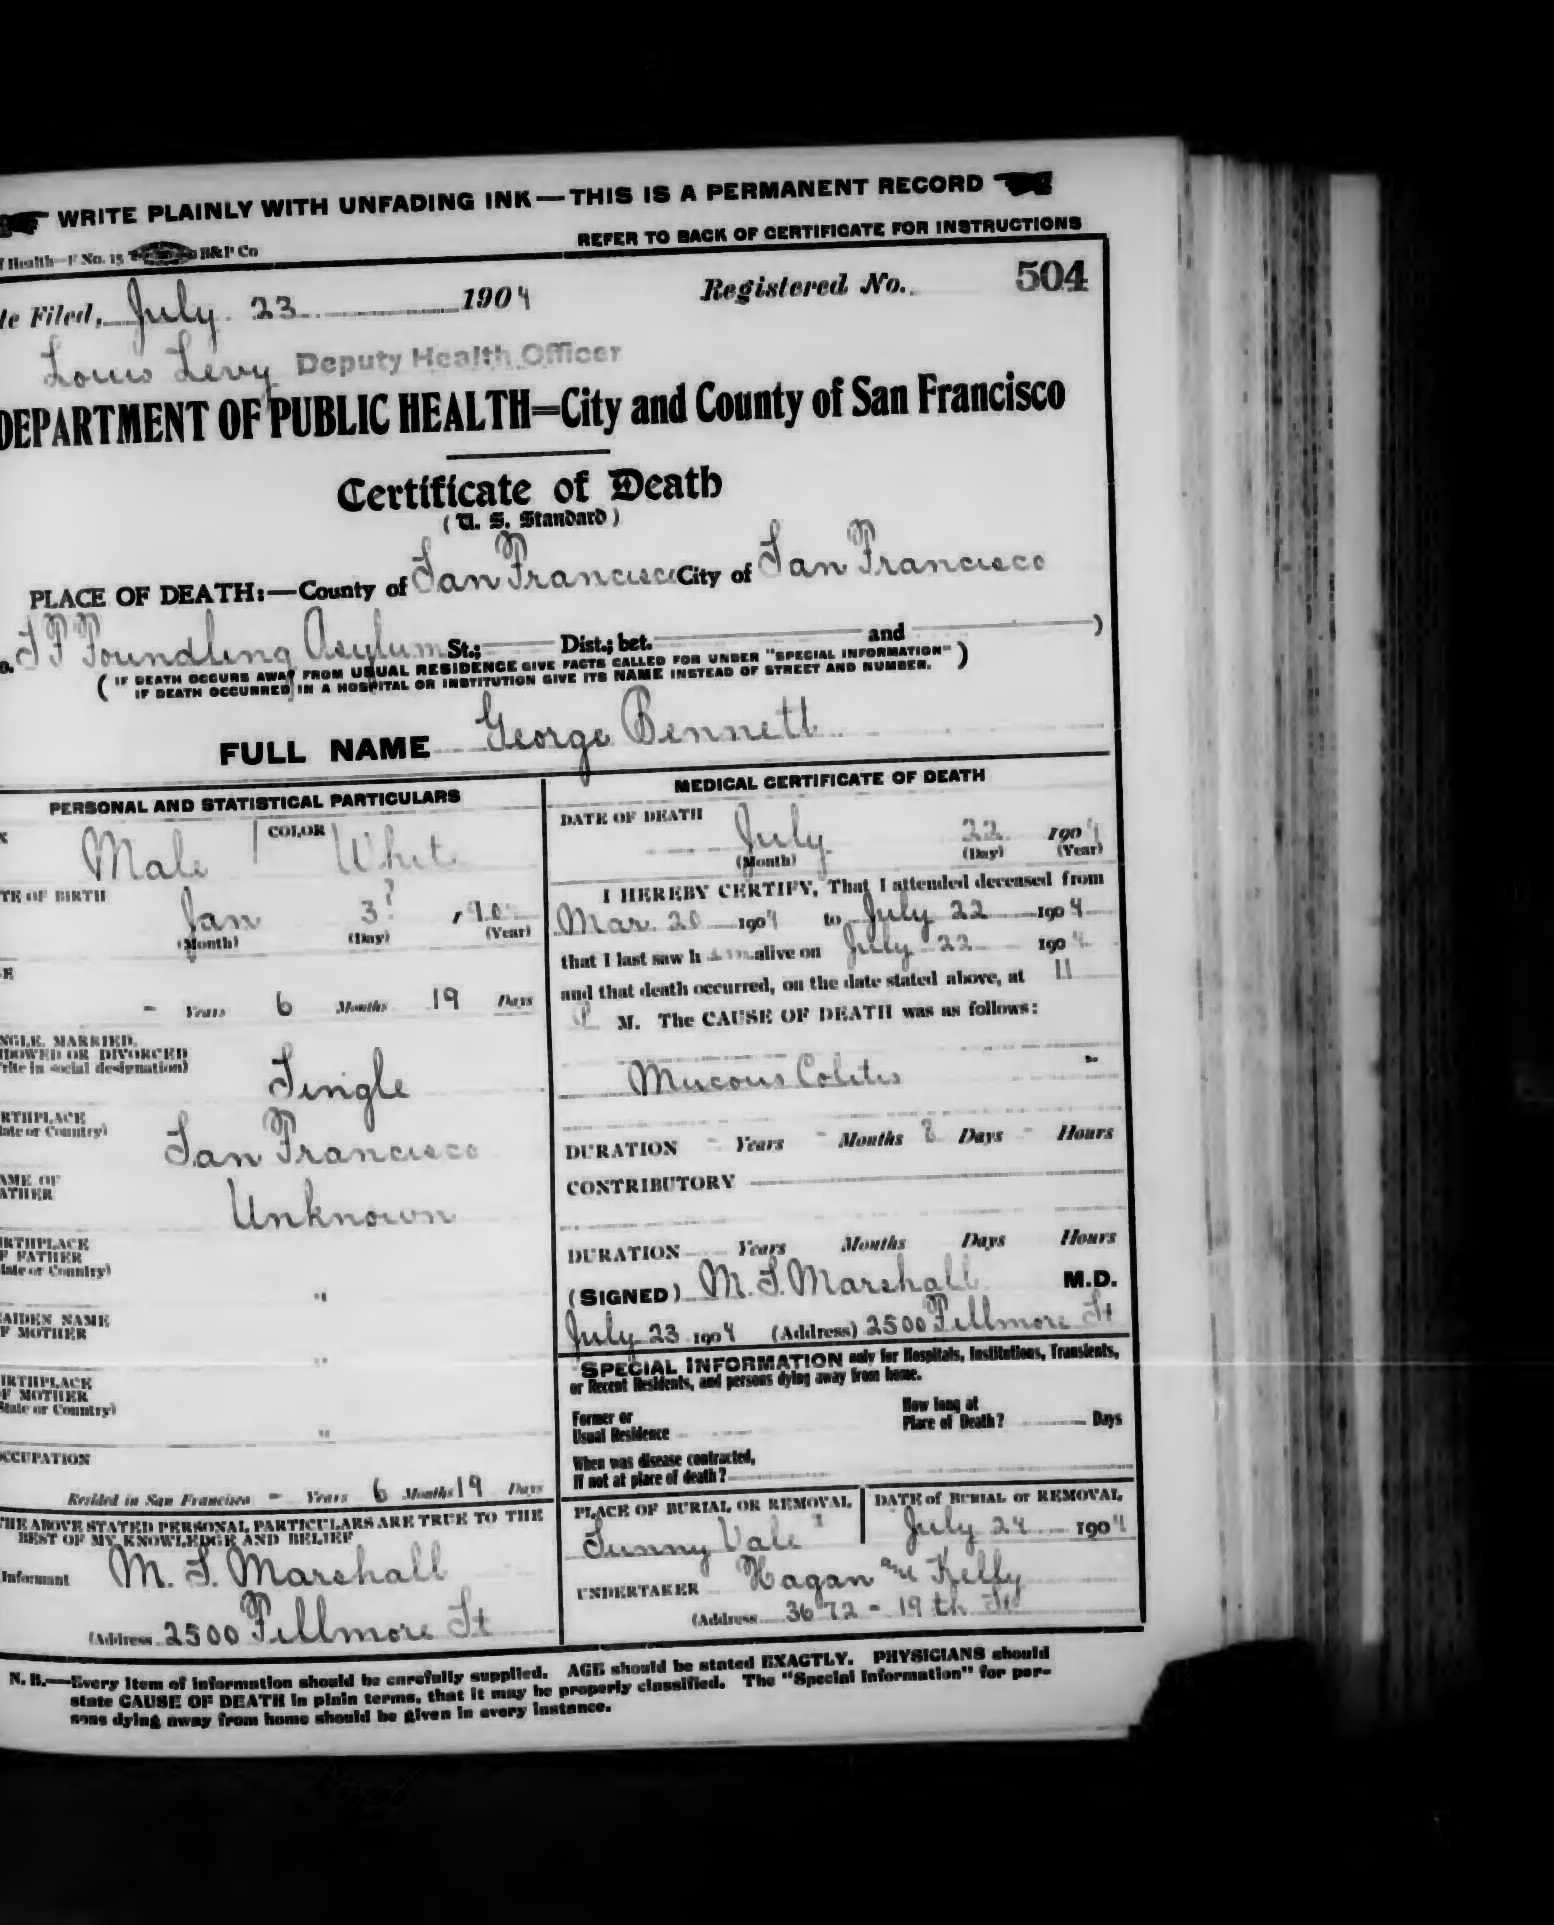 WRITE PLAINLY WITH UNFADING INK—THIS IS A PERMANENT RECORD
f Health—F No. 15 B&P Co REFER TO BACK OF CERTIFICATE FOR INSTRUCTIONS
te Filed, July 23 1904 Registered No. 504
Louis Levy Deputy Health Officer
DEPARTMENT OF PUBLIC HEALTH=City and County of San Francisco
Certificate of Death
(U. S. Standard)
PLACE OF DEATH:—County of San Francisco City of San Francisco
o. S F Foundling Asylum St.; Dist.; bet. and )
( IF DEATH OCCURS AWAY FROM USUAL RESIDENCE GIVE FACTS CALLED FOR UNDER "SPECIAL INFORMATION" )
IF DEATH OCCURRED IN A HOSPITAL OR INSTITUTION GIVE ITS NAME INSTEAD OF STREET AND NUMBER.
FULL NAME George Bennett
PERSONAL AND STATISTICAL PARTICULARS
X Male COLOR White
TE OF BIRTH
Jan 3? , 190
(Month) (Day) (Year)
E
- Years 6 Months 19 Days
NGLE, MARRIED,
IDOWED OR DIVORCED
rite in social designation)
Single
RTHPLACE
tate or Country)
San Francisco
AME OF
ATHER
Unknown
IRTHPLACE
F FATHER
tate or Country)
"
AIDEN NAME
F MOTHER
"
IRTHPLACE
F MOTHER
State or Country)
"
CCUPATION
Resided in San Francisco - Years 6 Months 19 Days
THE ABOVE STATED PERSONAL PARTICULARS ARE TRUE TO THE
BEST OF MY KNOWLEDGE AND BELIEF
Informant M. S. Marshall
(Address 2500 Fillmore St
MEDICAL CERTIFICATE OF DEATH
DATE OF DEATH
July 22 1904
(Month) (Day) (Year)
I HEREBY CERTIFY, That I attended deceased from
Mar. 20 1904 to July 22 1904
that I last saw h im alive on July 22 1904
and that death occurred, on the date stated above, at 11
P M. The CAUSE OF DEATH was as follows:
Mucous Colitis
DURATION - Years - Months 8 Days - Hours
CONTRIBUTORY
DURATION Years Months Days Hours
(SIGNED) M. S. Marshall M.D.
July 23 1904 (Address) 2500 Fillmore St
SPECIAL INFORMATION only for Hospitals, Institutions, Transients,
or Recent Residents, and persons dying away from home.
Former or
Usual Residence
How long at
Place of Death? Days
When was disease contracted,
If not at place of death?
PLACE OF BURIAL OR REMOVAL
Sunny Vale
DATE of BURIAL or REMOVAL
July 24 1904
UNDERTAKER Hagan and Kelly
(Address 3672 - 19th St
N. B.—Every item of information should be carefully supplied. AGE should be stated EXACTLY. PHYSICIANS should
state CAUSE OF DEATH in plain terms, that it may be properly classified. The "Special Information" for per-
sons dying away from home should be given in every instance.